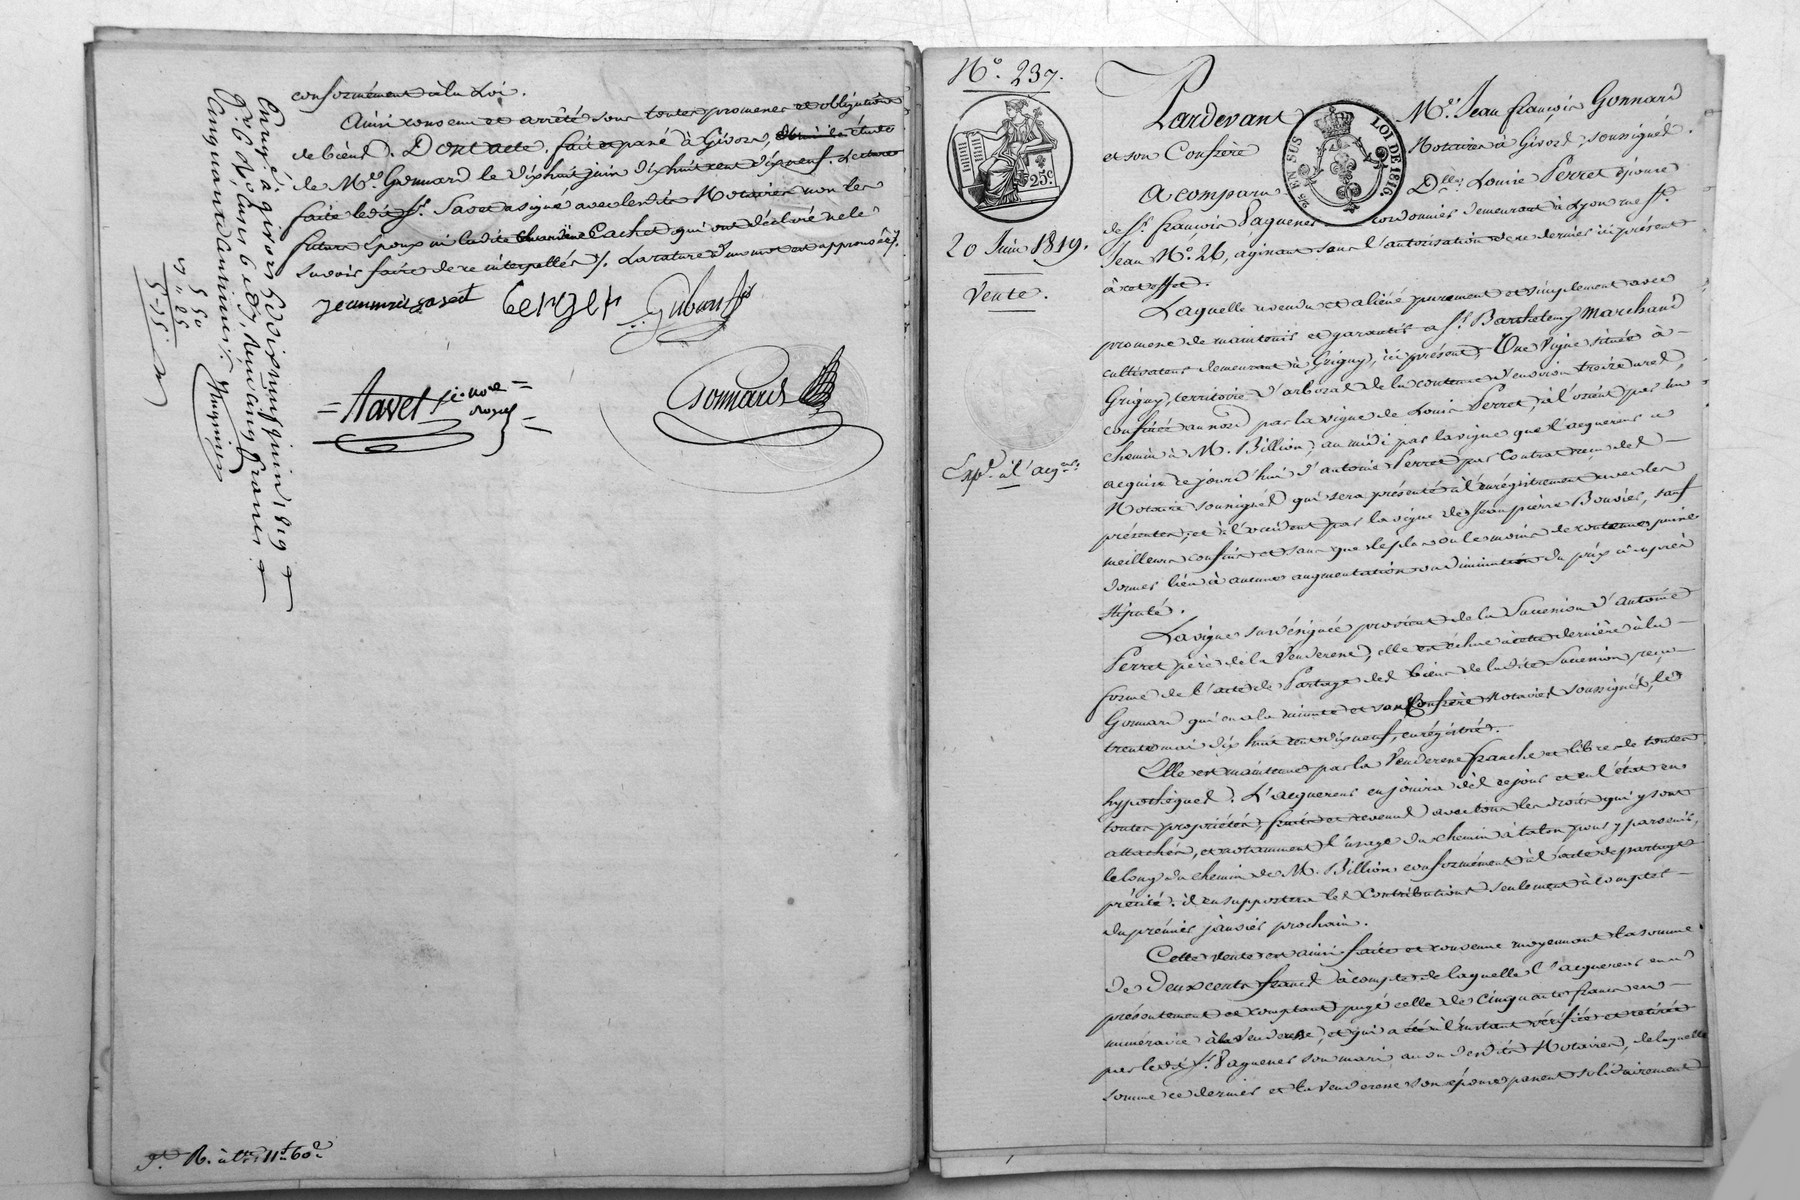 conformément à la Loi.
Ainsi convenu et arrêté sous toutes promesses et obligations
de biens. Dont acte, fait et passé à Givors, étude
de Me. Gonnard le dix huit juin dix huit cent dix neuf. Lecture
faite ledit Sr. Favet a signé avec lesdits Notaires non les
futurs Epoux ni ladite Claudine Cachet qui ont déclaré ne le
savoir faire de ce interpellés ./. La rature d'un mot est approuvée ./.
Berger
Gubian fils
= Favet
Gonnard
Enrgé à givors le dix neuf juin 1819
cinquante centimes.
5 50
" 55
N°. 237.
25c.
20 Juin 1819.
Vente.
Expd. à l'acqr.
25 EN SUS LOI DE 1816.
Pardevant Me. Jean françois Gonnard
et son Confrère Notaires à Givors, soussignés.
A comparu Dlle. Louise Perret épouse
de Sr. françois Paquenes cordonnier demeurant à Lyon rue St.
Jean N°. 26, agissant sous l'autorisation de ce dernier ici présent
à cet effet.
Laquelle a vendu et aliéné purement et simplement avec
promesse de maintenir et garantir a Sr. Barthelemy Marchand
cultivateur demeurant à Grigny, ici présent, Une Vigne située à
Grigny, territoire d'arboras de la contenue d'environ treize ares,
confinée au nord par la vigne de Louis Perret, à l'orient par un
chemin à M. Billion, au midi par la vigne que l'acquereur a
acquise ce jourd'hui d'antoine Perret par Contrat reçu des
Notaires soussignés qui sera présenté à l'enrégistrement avec les
présentes, et à l'occident par la vigne de Jean pierre Bouvier, sauf
meilleurs confins et sans que le plus ou le moins de contenue puisse
donner lieu à aucune augmentation ou diminution du prix ci après
stipulé.
La vigne sus désignée provient de la Succession d'antoine
Perret père de la Venderesse, elle est échue à cette dernière à la
forme de l'acte de Partage des biens de ladite Succession reçu
Gonnard qui en a la minute et son Confrère Notaires soussignés, le
trente mai dix huit cent dix neuf, enrégistré.
Elle est maintenue par la Venderesse franche et libre de toutes
hypothèques. L'acquereur en jouira dès ce jour et en l'état en
toutes propriétés, fruits et revenus avec tous les droits qui y sont
attachés, et notamment l'usage du chemin à talon pour y parvenir,
le long du chemin de M. Billion conformément à l'acte de partage
précité. il en supportera les contributions seulement à compter
du premier janvier prochain.
Cette vente est ainsi faite et convenue moyennant la somme
de deux cents francs à compte de laquelle l'acquereur en a
présentement et comptant payé celle de cinquante francs en
numéraire à la Venderesse, et qui a été à l'instant vérifiée et retirée
par ledit Sr. Paquenes son mari au vu desdits Notaires, de laquelle
somme ce dernier et la Venderesse son épouse passent solidairement